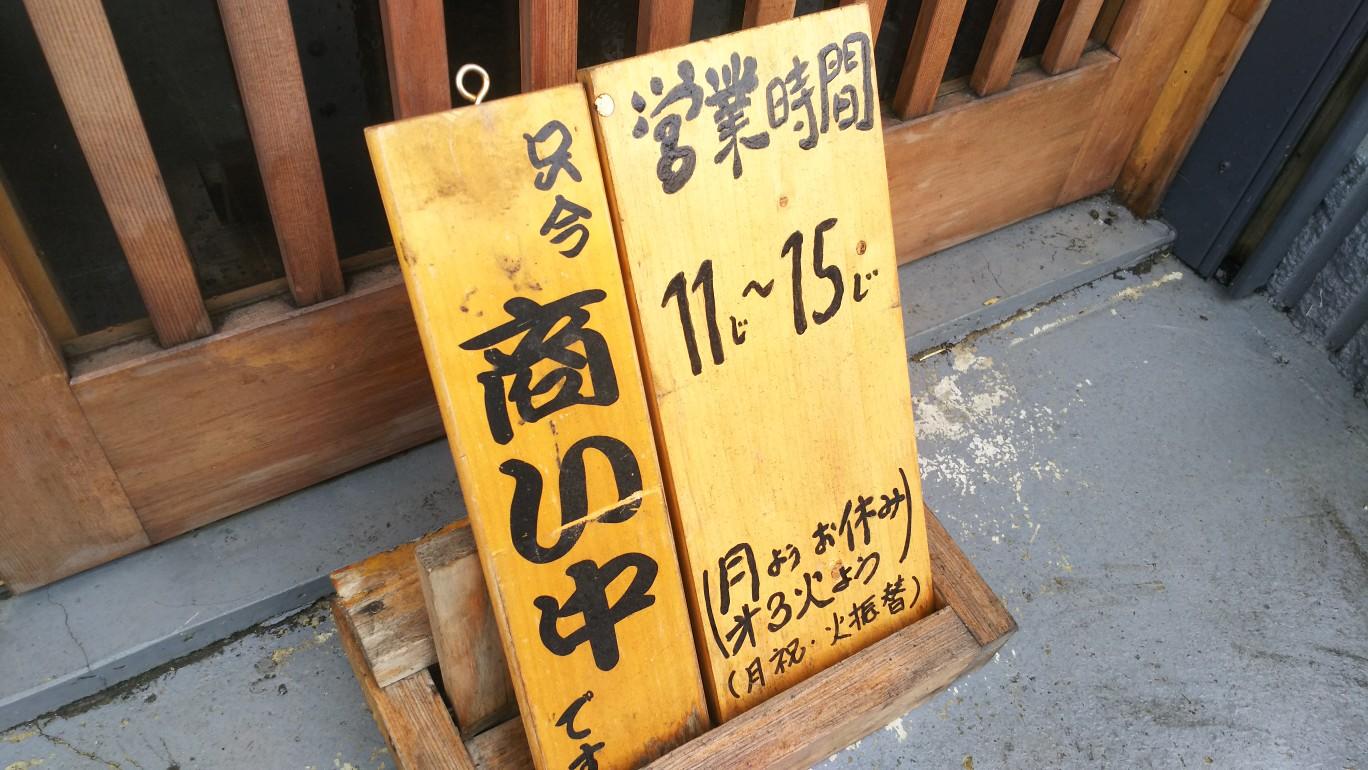 営業時間
11じ～15じ
(月よう お休み)
(㐧3火よう
(月祝・火振替)
只今
商い中
です